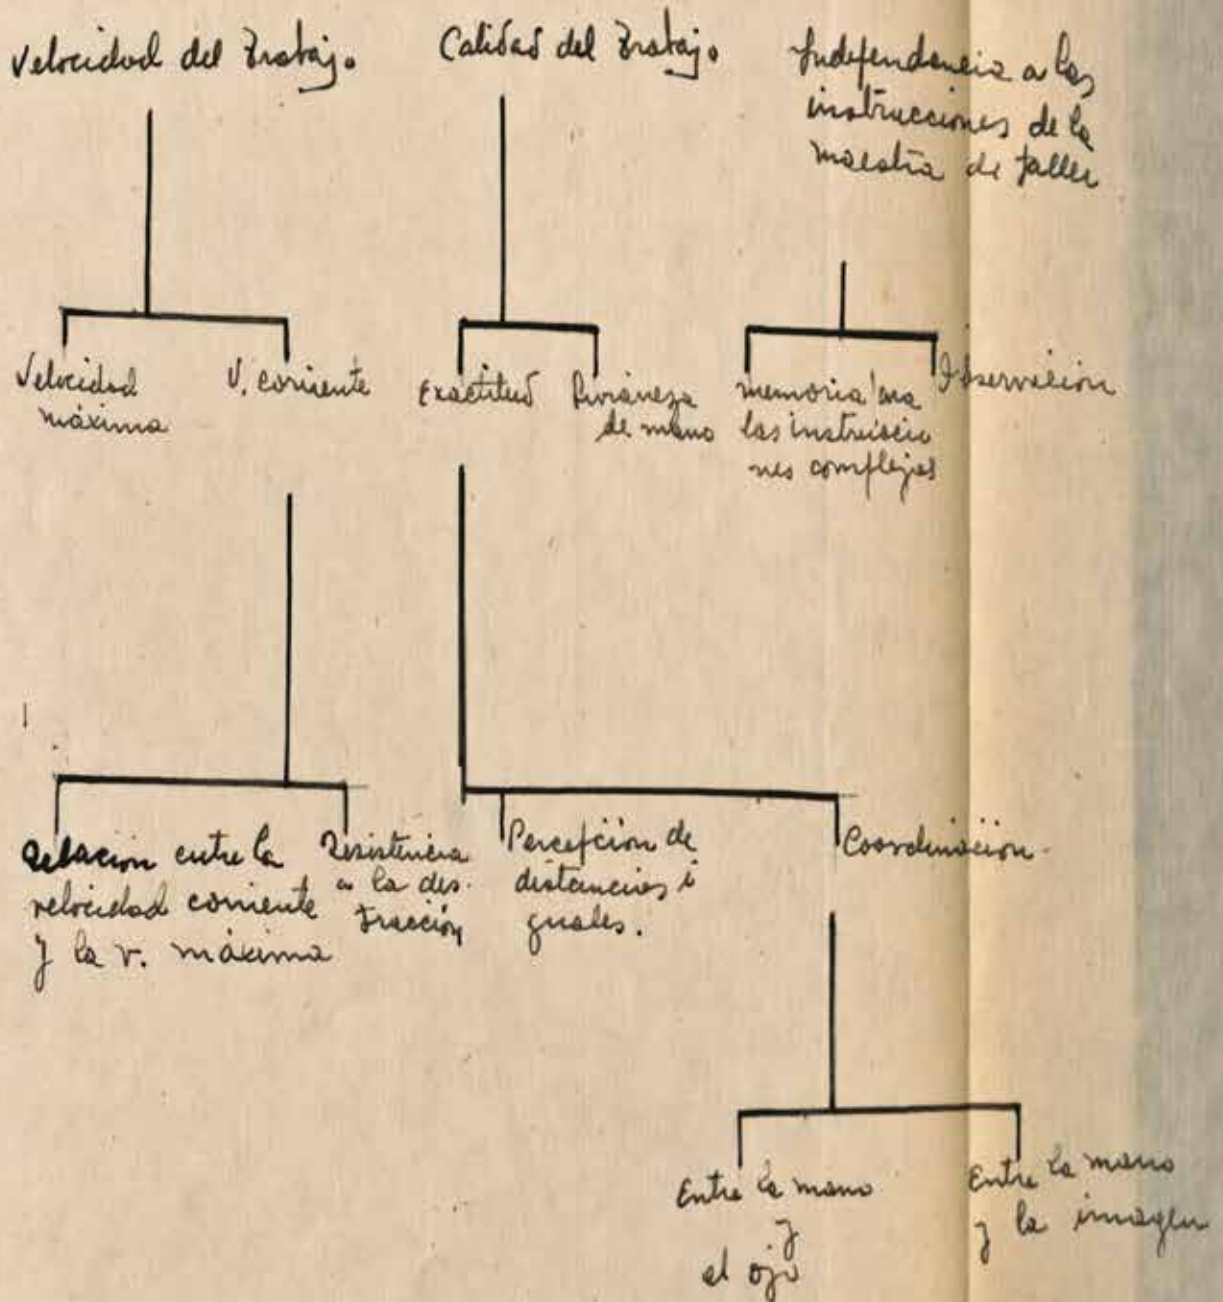 Velocidad del Trabajo
Calidad del Trabajo
Independencia a las
instrucciones de la
maestra de taller
Velocidad
máxima
V. corriente
Exactitud
de mano
memoria para
las instruccio
nes complejas
Observación
Relación entre la
velocidad corriente
y la v. máxima
Resistencia
a la dis-
tracción
Percepción de
distancias i
guales.
Coordinación.
Entre la mano
y
el ojo
Entre la mano
y la imagen